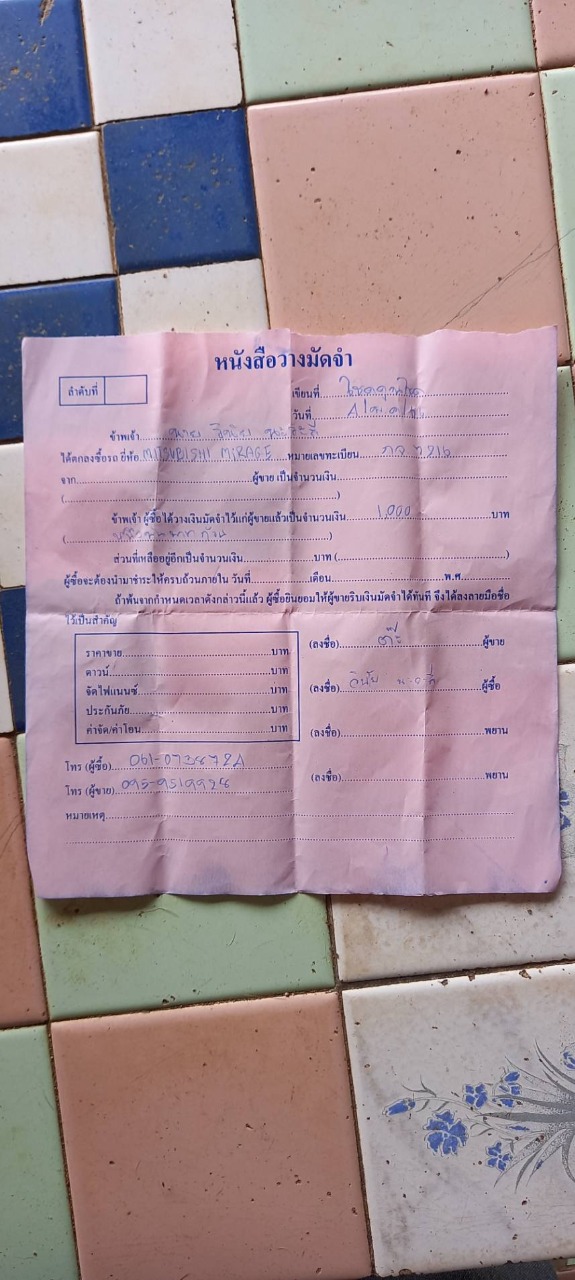 หนังสือวางมัดจำ
ลำดับที่
เขียนที่
วันที่
ข้าพเจ้า นาย
ได้ตกลงซื้อรถ ยี่ห้อ MITSUBISHI MIRAGE หมายเลขทะเบียน กจ 7216
จาก ผู้ขาย เป็นจำนวนเงิน
( )
ข้าพเจ้า ผู้ซื้อได้วางเงินมัดจำไว้แก่ผู้ขายแล้วเป็นจำนวนเงิน 1,000 บาท
( )
ส่วนที่เหลืออยู่อีกเป็นจำนวนเงิน บาท ( )
ผู้ซื้อจะต้องนำมาชำระให้ครบถ้วนภายใน วันที่ เดือน พ.ศ.
ถ้าพ้นจากกำหนดเวลาดังกล่าวนี้แล้ว ผู้ซื้อยินยอมให้ผู้ขายริบเงินมัดจำได้ทันที จึงได้ลงลายมือชื่อ
ไว้เป็นสำคัญ
ราคาขาย บาท
ดาวน์ บาท
จัดไฟแนนซ์ บาท
ประกันภัย บาท
ค่าจัด/ค่าโอน บาท
(ลงชื่อ) ผู้ขาย
(ลงชื่อ) ผู้ซื้อ
(ลงชื่อ) พยาน
(ลงชื่อ) พยาน
โทร (ผู้ซื้อ)
โทร (ผู้ขาย) 095-9519928
หมายเหตุ